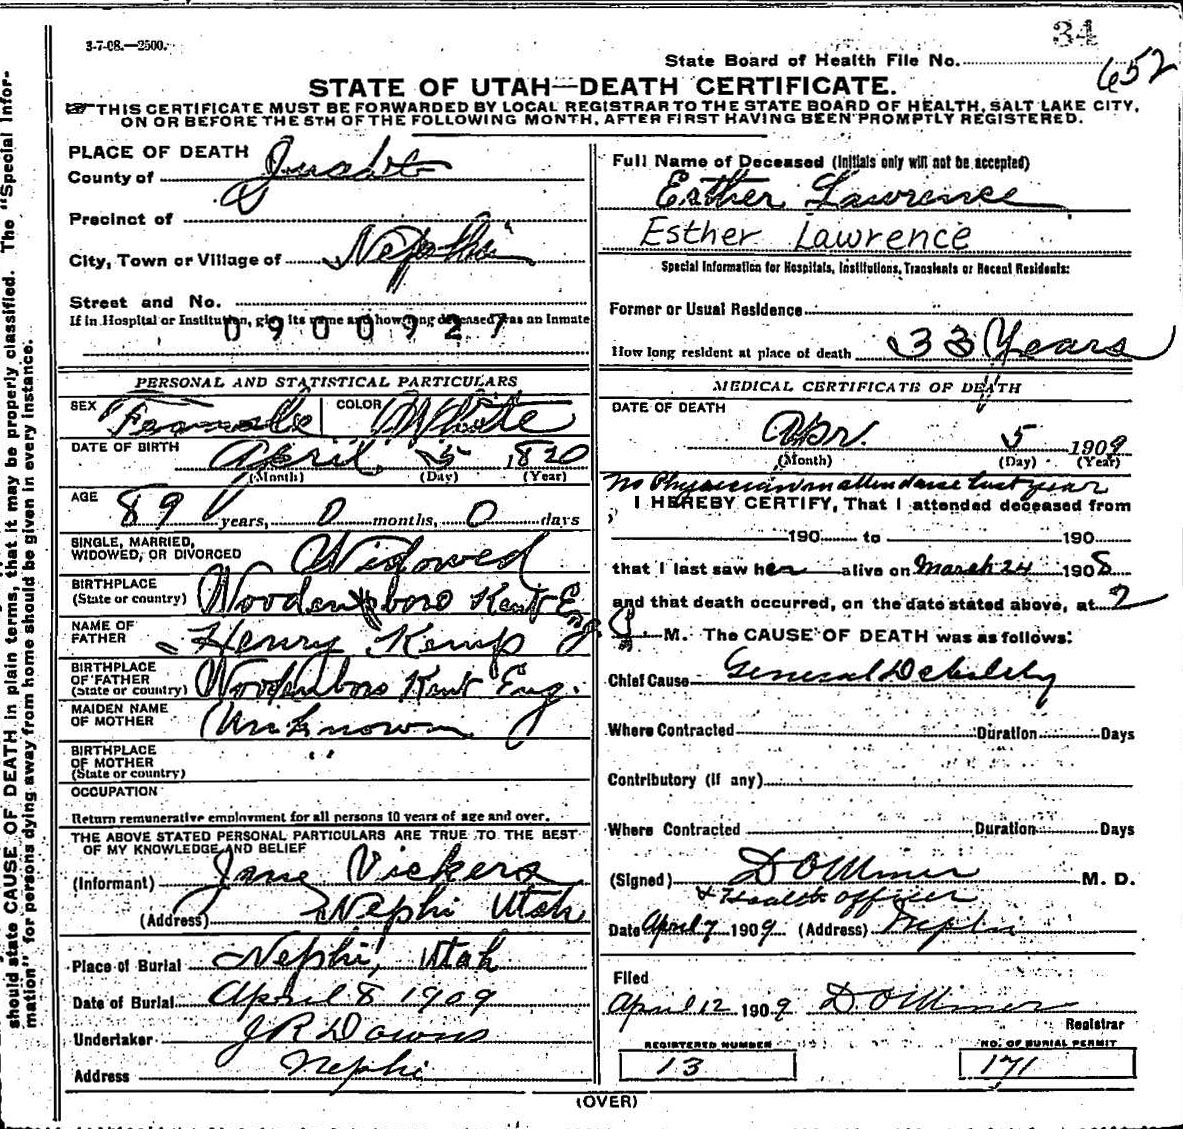 3-7-08.—2500.
34
State Board of Health File No.
652
STATE OF UTAH—DEATH CERTIFICATE.
THIS CERTIFICATE MUST BE FORWARDED BY LOCAL REGISTRAR TO THE STATE BOARD OF HEALTH, SALT LAKE CITY,
ON OR BEFORE THE 5TH OF THE FOLLOWING MONTH, AFTER FIRST HAVING BEEN PROMPTLY REGISTERED.
should state CAUSE OF DEATH in plain terms, that it may be properly classified. The "Special Infor-
mation" for persons dying away from home should be given in every instance.
PLACE OF DEATH
County of
Precinct of
City, Town or Village of Nephi
Street and No.
If in Hospital or Institution, give its name and how long deceased was an Inmate
0900927
PERSONAL AND STATISTICAL PARTICULARS
SEX Female COLOR White
DATE OF BIRTH April 5 1820
(Month) (Day) (Year)
AGE
89 years, 0 months, 0 days
SINGLE, MARRIED,
WIDOWED, OR DIVORCED Widowed
BIRTHPLACE
(State or country) Woodensboro Kent Eng.
NAME OF
FATHER Henry Kemp
BIRTHPLACE
OF FATHER
(State or country) Woodenboro Kent Eng.
MAIDEN NAME
OF MOTHER Unknown
BIRTHPLACE
OF MOTHER
(State or country) " "
OCCUPATION
Return remunerative employment for all persons 10 years of age and over.
THE ABOVE STATED PERSONAL PARTICULARS ARE TRUE TO THE BEST
OF MY KNOWLEDGE AND BELIEF
(Informant) Jane Vickers
(Address) Nephi Utah
Place of Burial Nephi, Utah
Date of Burial April 8 1909
Undertaker J R Downs
Address Nephi
Full Name of Deceased (Initials only will not be accepted)
Esther Lawrence
Esther Lawrence
Special Information for Hospitals, Institutions, Transients or Recent Residents:
Former or Usual Residence
How long resident at place of death 33 Years
MEDICAL CERTIFICATE OF DEATH
DATE OF DEATH
Apr. 5 1909
(Month) (Day) (Year)
No Physician in attendance last year
I HEREBY CERTIFY, That I attended deceased from
190 to 190
that I last saw her alive on March 24 1908
and that death occurred, on the date stated above, at 7
M. The CAUSE OF DEATH was as follows:
Chief Cause General Debility
Where Contracted Duration Days
Contributory (if any)
Where Contracted Duration Days
(Signed) M. D.
& Health officer
Date April 7 1909 (Address) Nephi
Filed
April 12 1909
Registrar
REGISTERED NUMBER
13
NO. OF BURIAL PERMIT
171
(OVER)